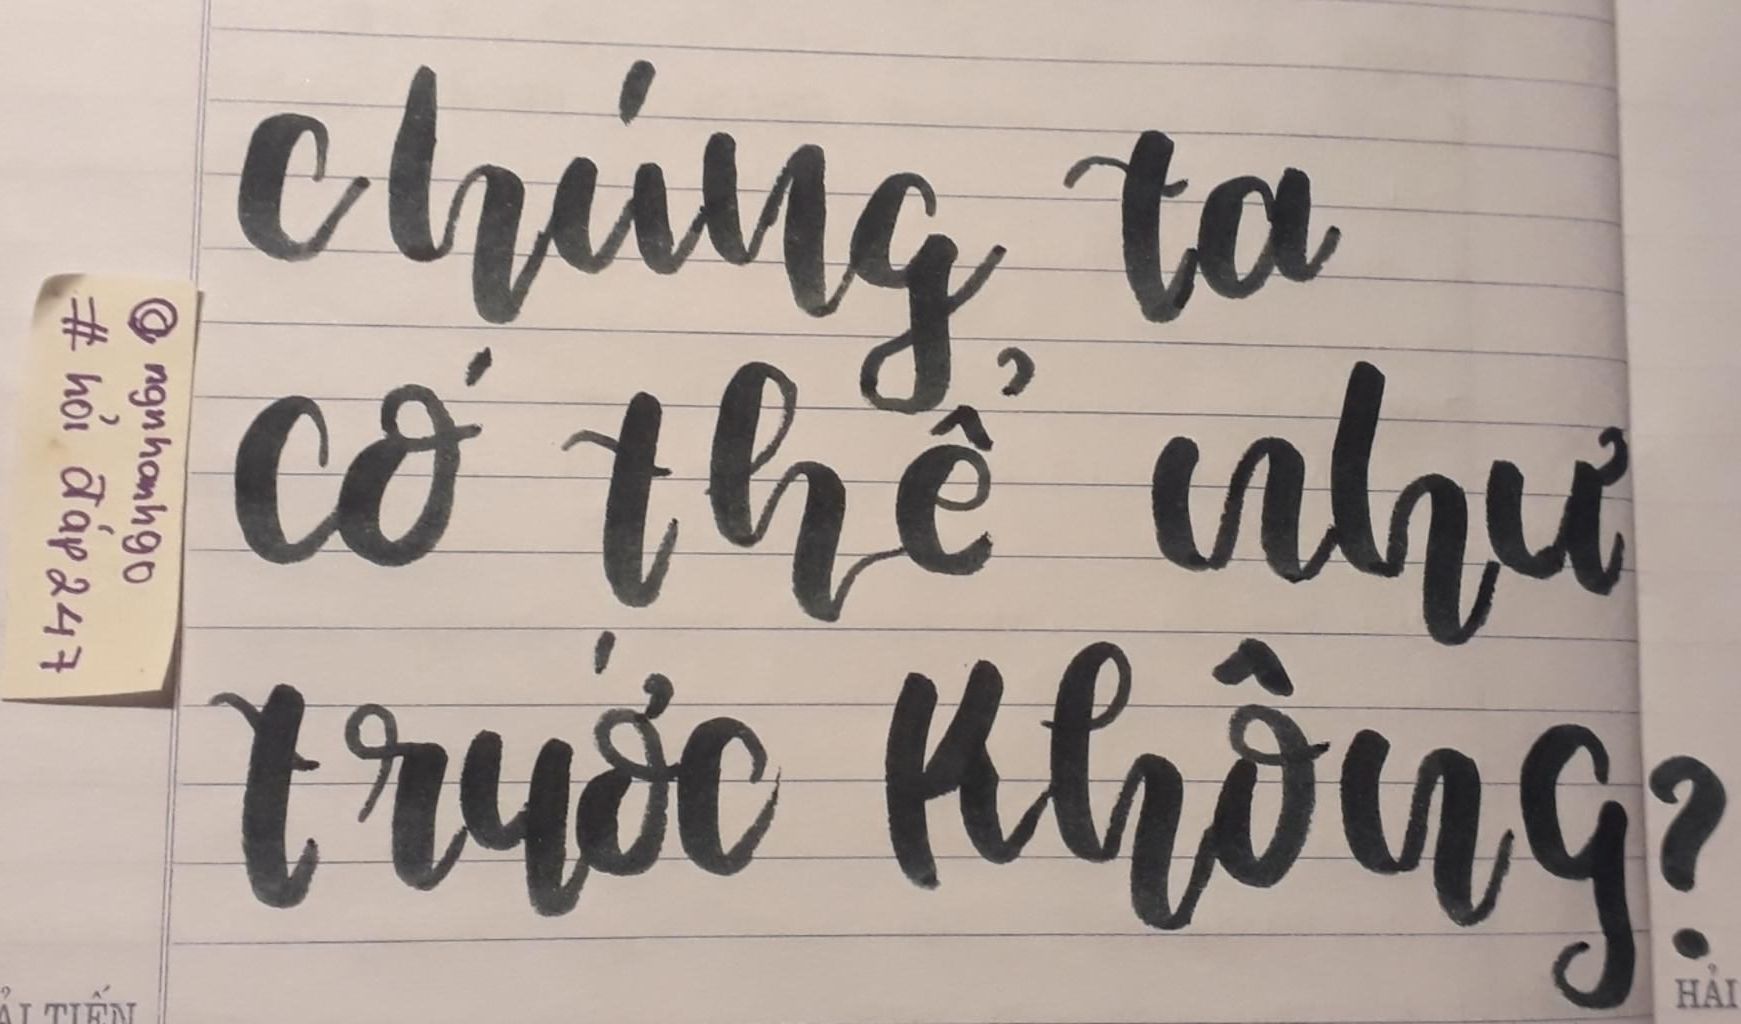 chúng ta
có thể như
trước không?
@ngnhanh90
#hỏi đáp247
ẢI TIẾN
HẢI